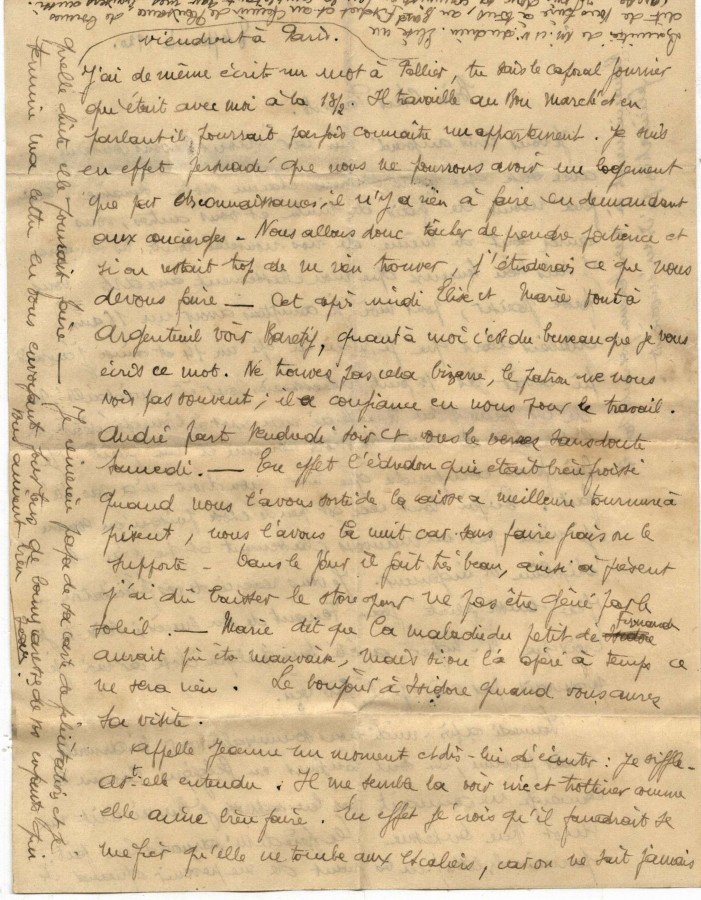 viendront à Paris.
J'ai de même écrit un mot à Pallier, tu sais le caporal fourrier
qu'était avec moi à la 18/2. Il travaille au Bon Marché et en
parlant il pourrait parfois connaître un appartement. Je suis
en effet persuadé que nous ne pourrons avoir un logement
que par connaissances, il n'y a rien à faire en demandant
aux concierges - Nous allons donc tâcher de prendre patience et
si on restait trop de ne rien trouver, j'étudierais ce que nous
devons faire — Cet après midi Elise et Marie vont à
Argenteuil voir Barety, quant à moi c'est du bureau que je vous
écris ce mot. Ne trouvez pas cela bizarre, le patron ne nous
voit pas souvent, il a confiance en nous pour le travail.
André part Vendredi soir et vous le verrez sans doute
Samedi. — En effet l'édredon qui était bien froissé
quand nous l'avons sorti de la caisse a meilleure tournure à
présent, nous l'avons la nuit car sans faire frais on le
supporte - Dans le jour il fait très beau, ainsi à présent
j'ai dû baisser le store pour ne pas être gêné par le
soleil. — Marie dit que la maladie du petit de Isidore
aurait pu être mauvaise, mais si on l'a opéré à temps ce
ne sera rien. Le bonjour à Isidore quand vous aurez
sa visite.
Appelle Jeanne un moment et dis-lui d'écouter : je siffle -
a t elle entendu. Il me semble la voir rire et trottiner comme
elle aime bien faire. En effet je crois qu'il faudrait se
méfier qu'elle ne tombe aux escaliers, car on ne sait jamais
quelle chute elle pourrait faire — Je remercie papa de sa carte de félicitations et je
termine ma lettre en vous envoyant pour tous de bons baisers de vos enfants qui
vous aiment bien